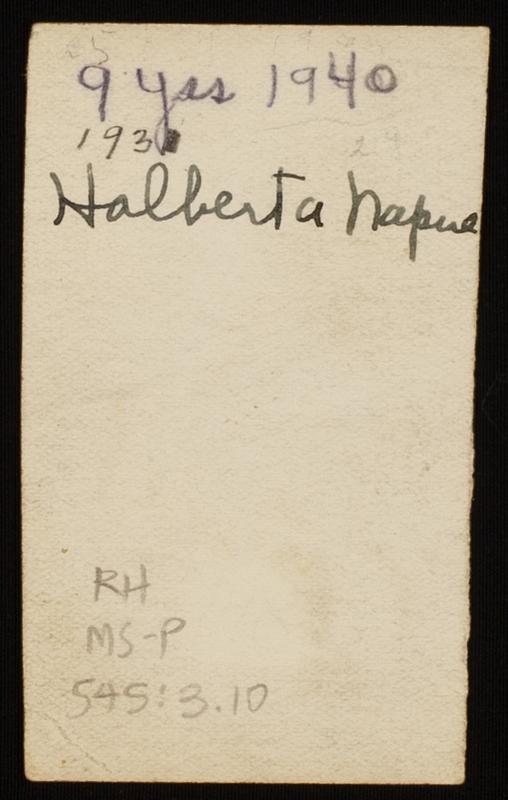 9 yrs 1940
193
Halberta Napue
RH
MS-P
545:3.10